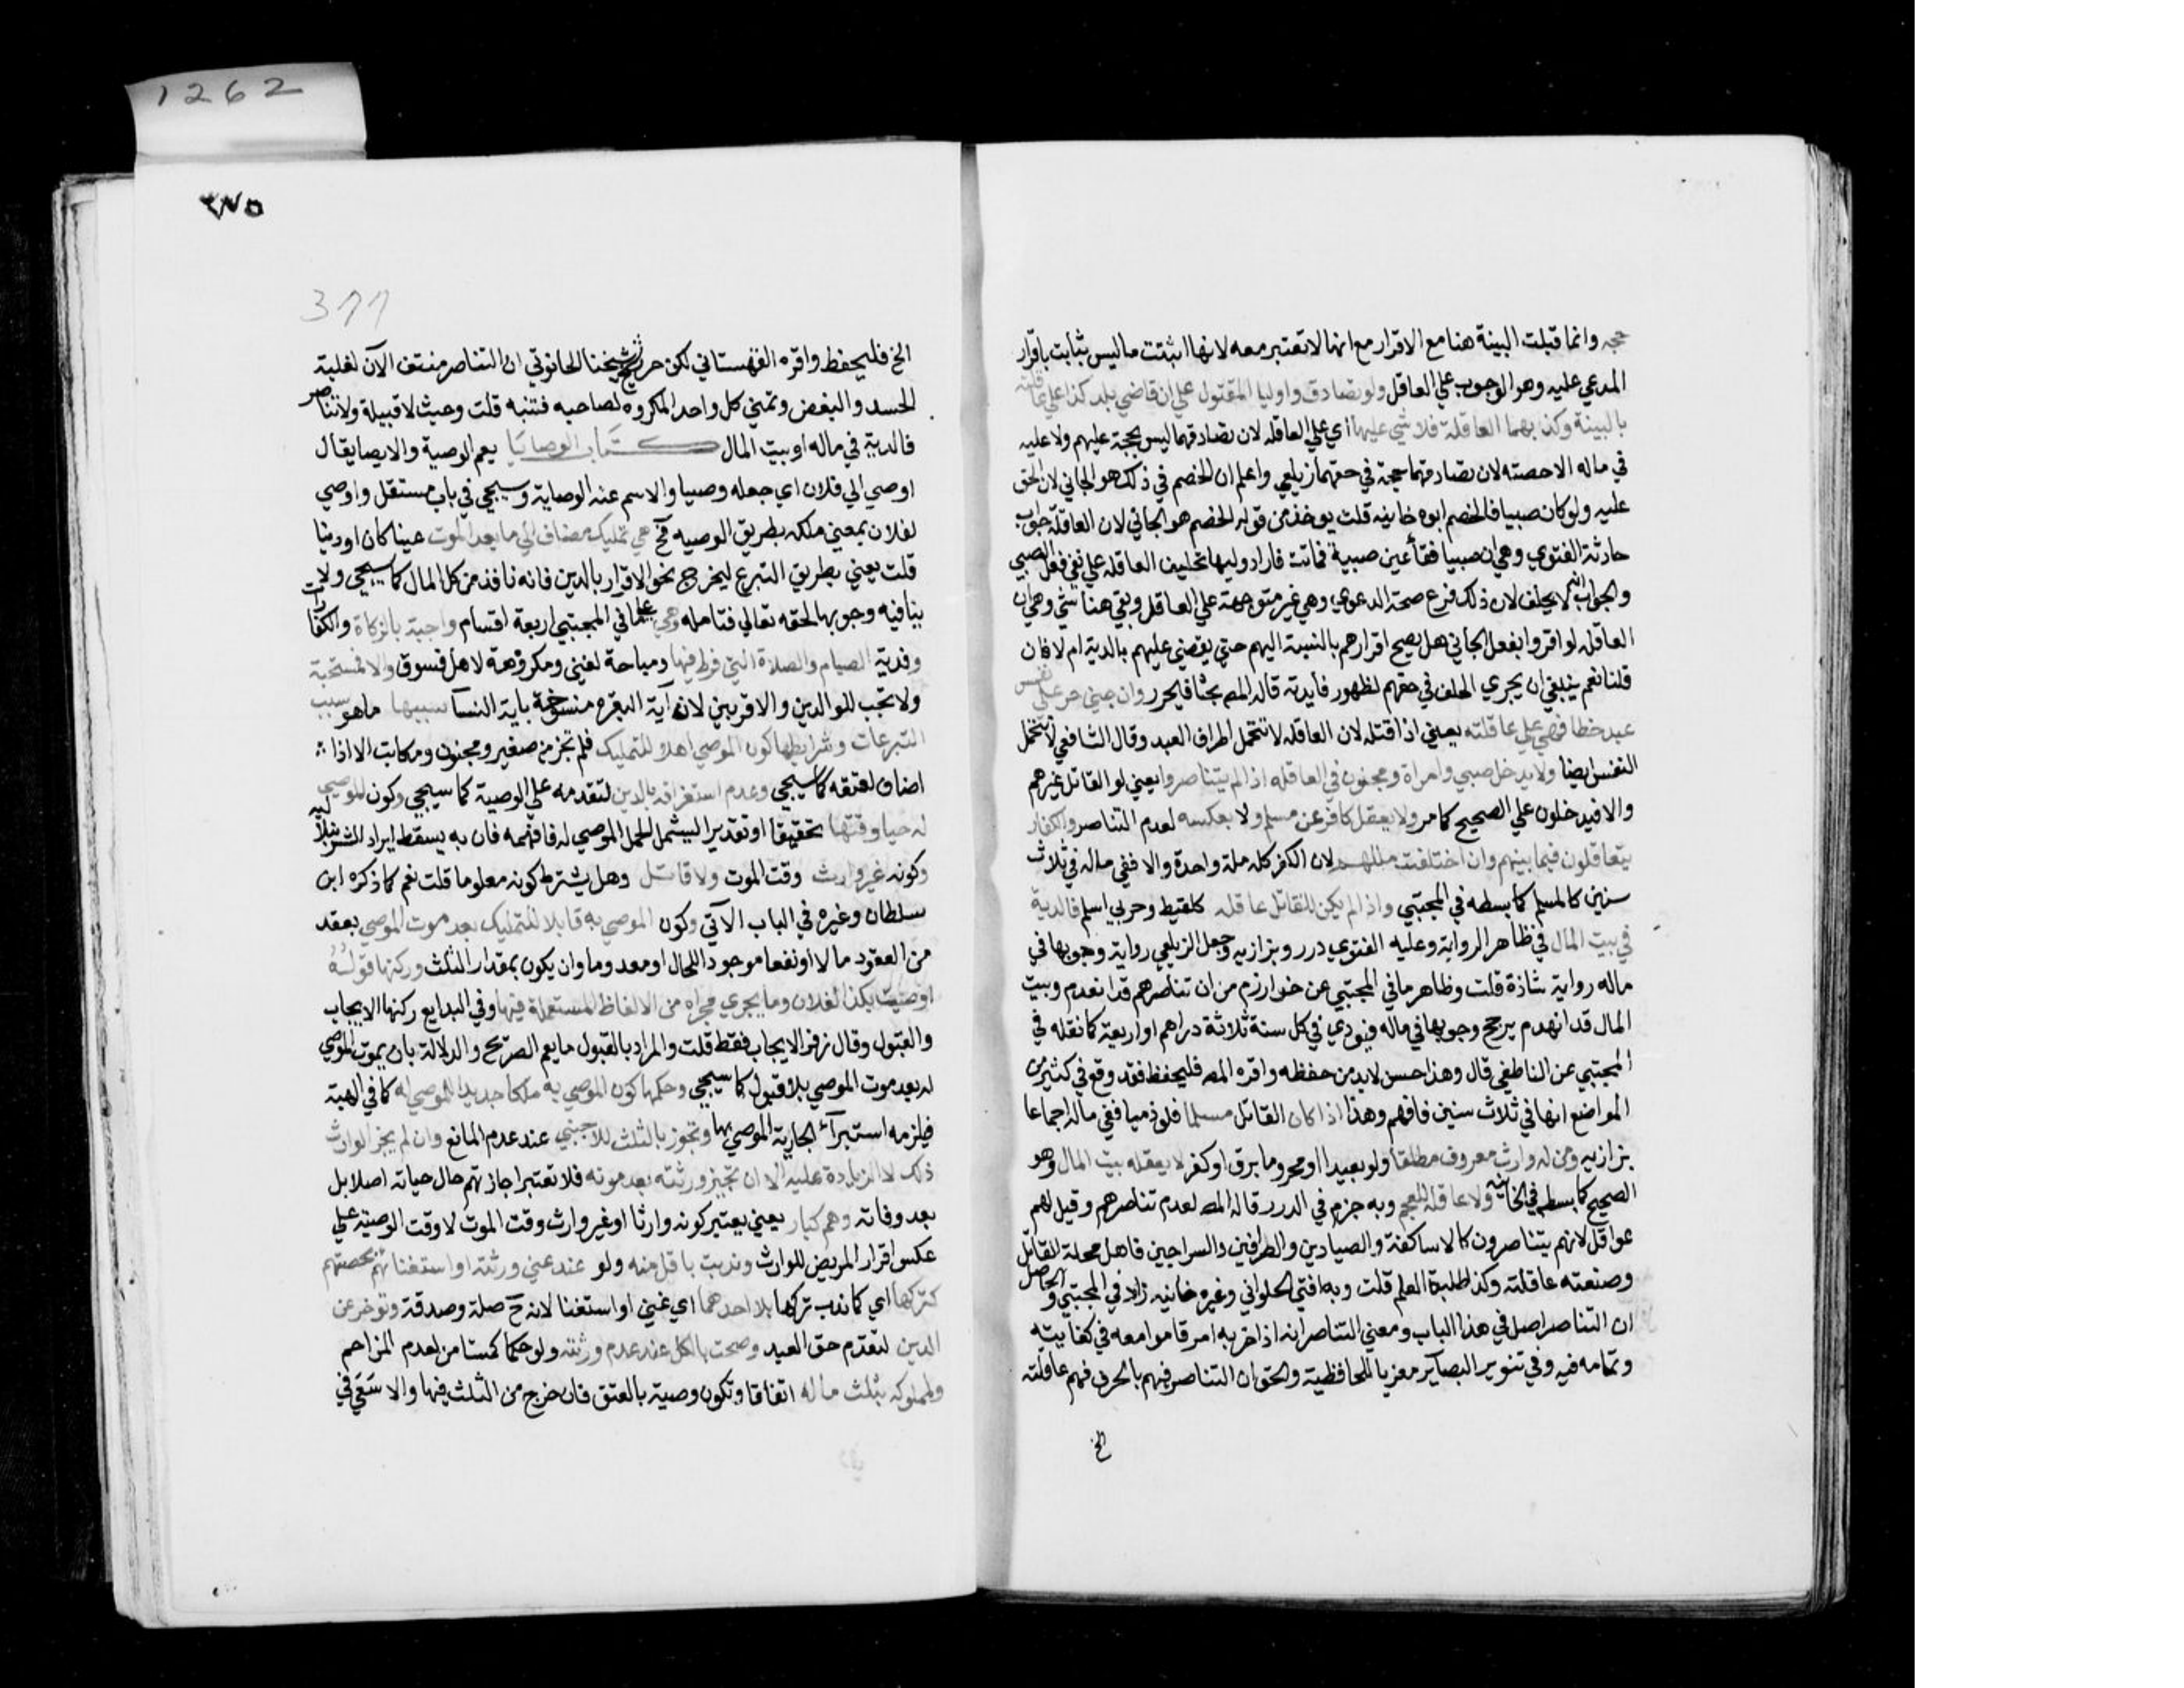 حجه وانما قبلت البينة هنا مع الاقرار مع انها لا تعتبر معه لانها اثبتت ما ليس بثابت باقرار
المدعي عليه وهو الوجوب علي العاقل ولو تصادق واوليا المقتول علي ان قاضي بلد كذا علي عاقلته
بالبينة وكذبهما العاقلة فلا شي عليها اي علي العاقله لان تصادقهما ليس بحجة عليهم ولا عليه
في ماله الا حصته لان تصادقهما حجة في حقهما زيلعي واعلم ان الخصم في ذلك هو الجاني لان الحق
عليه ولو كان صبيا فالخصم ابوه خانيه قلت يوخذ من قوله الخصم هو الجاني لان العاقلة جواب
حادثة الفتوي وهي ان صبيا فقأ عين صبية فماتت فاراد وليها تحليف العاقله علي نفي فعل الصبي
والجواب انه لا يحلف لان ذلك فرع صحة الدعوي وهي غير متوجهة علي العاقل وبقي هنا شي وهي ان
العاقله لو اقروا بفعل الجاني هل يصح اقرارهم بالنسبة اليهم حتي يقضي عليهم بالدية ام لا فان
قلنا نعم ينبغي ان يجري الحلف في حقهم لظهور فايدته قاله المص بحثا فليحرر وان جني حر علي نفس
عبد خطا فهي علي عاقلته يعني اذا قتله لان العاقله لا تتحمل اطراف العبد وقال الشافعي لا تتحمل
النفس ايضا ولا يدخل صبي وامراة ومجنون في العاقله اذا لم يتناصروا يعني لو القاتل غيرهم
والا فيدخلون علي الصحيح كما مر ولا يعقل كافر عن مسلم ولا بعكسه لعدم التناصر والكفار
يتعاقلون فيما بينهم وان اختلفت مللهم لان الكفر كله ملة واحدة والا ففي ماله في ثلاث
سنين كالمسلم كما بسطه في المجتبي واذا لم يكن للقاتل عاقله كلقيط وحربي اسلم فالدية
في بيت المال في ظاهر الرواية وعليه الفتوي درر وبزازيه وجعل الزيلعي رواية وجوبها في
ماله رواية شاذة قلت وظاهر ما في المجتبي عن خوارزم من ان تناصرهم قد انعدم وبيت
المال قد انهدم يرجح وجوبها في ماله فيودي في كل سنة ثلاثة دراهم او اربعة كما نقله في
المجتبي عن الناطفي قال وهذا حسن لا بد من حفظه واقره المص فليحفظ فقد وقع في كثير من
المواضع انها في ثلاث سنين فافهم وهذا اذا كان القاتل مسلما فلو ذميا ففي ماله اجماعا
بزازيه ومن له وارث معروف مطلقا ولو بعيدا او محروما برق او كفر لا يعقله بيت المال وهو
الصحيح كما بسطه في الخانية ولا عاقلة للعجم وبه جزم في الدرر قاله المص لعدم تناصرهم وقيل لهم
عواقل لانهم يتناصرون كالاساكفة والصيادين والصرافين والسراجين فاهل محلة القاتل
وصنعته عاقلته وكذا طلبة العلم قلت وبه افتي الحلواني وغيره خانيه زاد في المجتبي والحاصل
ان التناصر اصل في هذا الباب ومعني التناصر انه اذا حزبه امر قاموا معه في كفايته
وتمامه فيه وفي تنوير البصاير معزيا للحافظية والحق ان التناصر فيهم بالحرف فهم عاقلته
الخ
1262
٣٧٥
377
الخ فليحفظ واقره القهستاني لكن حرر شيخ شيخنا الحانوتي ان التناصر منتف الآن لغلبة
الحسد والبغض وتمني كل واحد المكروه لصاحبه فتنبه قلت وحيث لا قبيلة ولا تناصر
فالدية في ماله او بيت المال كتاب الوصايا يعم الوصية والايصا يقال
اوصي الي فلان اي جعله وصيا والاسم عنه الوصاية وسيجي في باب مستقل واوصي
لفلان بمعني ملكه بطريق الوصيه فح هي تمليك مضاف الي ما بعد الموت عينا كان او دينا
قلت يعني بطريق التبرع ليخرج نحو الاقرار بالدين فانه نافذ من كل المال كما سيجي ولا
ينافيه وجوبها لحقه تعالي فتامله وهي علي ما في المجتبي اربعة اقسام واجبة بالزكاة والكفارات
وفدية الصيام والصلاة التي فرط فيها ومباحة لغني ومكروهة لاهل فسوق والا فمستحبة
ولا تجب للوالدين والاقربين لان آية البقره منسوخة باية النسآ سببها ما هو سبب
التبرعات وشرايطها كون الموصي اهلا للتمليك فلم تجز من صغير ومجنون ومكاتب الا اذا
اضاف لعتقه كما سيجي وعدم استغراقه بالدين لتقدمه علي الوصية كما سيجي وكون الموصي
له حيا وقتها تحقيقا او تقديرا ليشمل الحمل الموصي له فافهمه فان به يسقط ايراد الشرنبلاليه
وكونه غير وارث وقت الموت ولا قاتل وهل يشترط كونه معلوما قلت نعم كما ذكره ابن
سلطان وغيره في الباب الآتي وكون الموصي به قابلا للتمليك بعد موت الموصي بعقد
من العقود مالا او نفعا موجودا للحال او معدوما وان يكون بمقدار الثلث وركنها قوله
اوصيت بكذا لفلان وما يجري مجراه من الالفاظ المستعملة فيها وفي البدايع ركنها الايجاب
والقبول وقال زفر الايجاب فقط قلت والمراد بالقبول ما يعم الصريح والدلالة بان يموت الموصي
له بعد موت الموصي بلا قبول كما سيجي وحكمها كون الموصي به ملكا جديدا للموصي له كما في الهبة
فيلزمه استبرآء الجارية الموصي بها وتجوز بالثلث للاجنبي عند عدم المانع وان لم يجز الوارث
ذلك لا الزيادة عليه الا ان تجيز ورثته بعد موته فلا تعتبر اجازتهم حال حياته اصلا بل
بعد وفاته وهم كبار يعني يعتبر كونه وارثا او غير وارث وقت الموت لا وقت الوصية علي
عكس اقرار المريض للوارث وندبت باقل منه ولو عند غني ورثته او استغنائهم بحصتهم
كتركها اي كما ندب تركها بلا احدهما اي غني او استغنا لانه ح صلة وصدقة وتوخر عن
الدين لتقدم حق العبد وصحت بالكل عند عدم ورثته ولو حكما كمستامن لعدم المزاحم
ولمملوكه بثلث ماله اتفاقا وتكون وصية بالعتق فان خرج من الثلث فيها والا سَعَي في